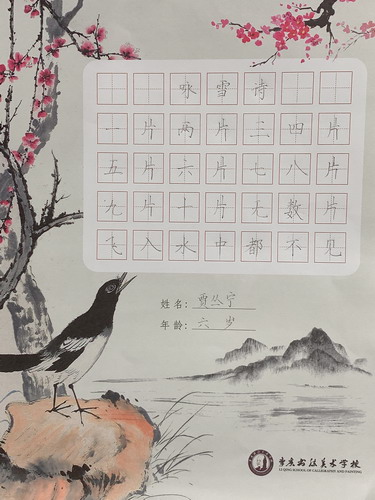 咏雪诗
一片两片三四片
五片六片七八片
九片十片无数片
飞入水中都不见
姓名：贾丛宁
年龄：六岁
LI QING SCHOOL OF CALLIGRAPHY AND PAINTING